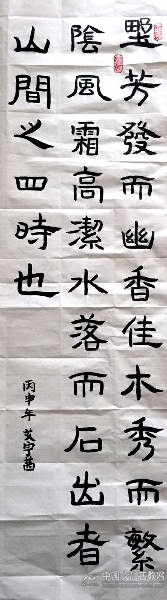 野芳發而幽香佳木秀而繁
陰風霜高潔水落而石出者
山間之四時也
丙申年